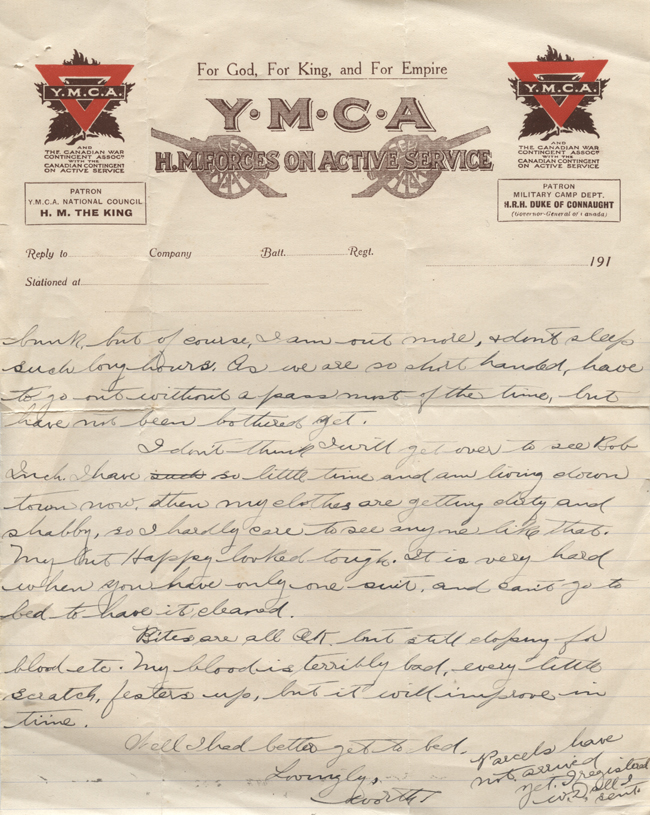 For God, For King, and For Empire
Y·M·C·A
H.M. FORCES ON ACTIVE SERVICE
Y.M.C.A.
AND
THE CANADIAN WAR
CONTINGENT ASSOCN
WITH THE
CANADIAN CONTINGENT
ON ACTIVE SERVICE
PATRON
Y.M.C.A. NATIONAL COUNCIL
H. M. THE KING
Y.M.C.A.
AND
THE CANADIAN WAR
CONTINGENT ASSOCN
WITH THE
CANADIAN CONTINGENT
ON ACTIVE SERVICE
PATRON
MILITARY CAMP DEPT.
H.R.H. DUKE OF CONNAUGHT
(Governor-General of Canada)
Reply to Company Batt. Regt.
191
Stationed at
bunk, but of course, I am out more, & dont sleep
such long hours. As we are so short handed, have
to go out without a pass most of the time, but
have not been bothered yet.
I dont think I will get over to see Bob
Inch. I have such so little time and am living down
town now. Then my clothes are getting dirty and
shabby, so I hardly care to see anyone like that.
My but Happy looked tough. It is very hard
when you have only one suit, and cant go to
bed to have it cleaned.
Bites are all O.K. but still doping for
blood etc. My blood is terribly bad, every little
scratch, festers up, but it will improve in
time.
Well I had better get to bed.
Lovingly,
Worth
Parcels have
not arrived
yet. I registered
all I
sent.